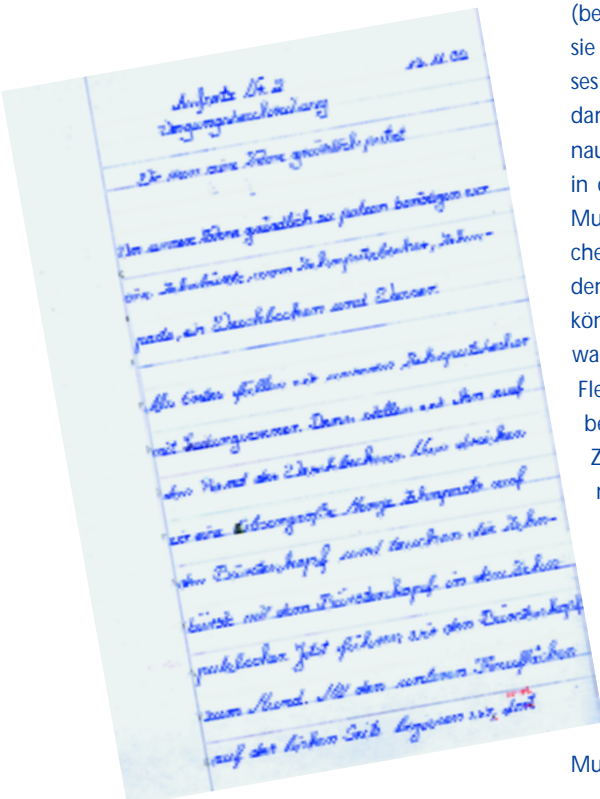 12.11.02
Aufsatz Nr. 2
Vorgangsbeschreibung
Wie man seine Zähne gründlich putzt
Um unsere Zähne gründlich zu putzen benötigen wir
eine Zahnbürste, einen Zahnputzbecher, Zahn-
pasta, ein Waschbecken und Wasser.
Als Erstes füllen wir unseren Zahnputzbecher
mit Leitungswasser. Dann stellen wir ihn auf
den Rand des Waschbeckens. Nun streichen
wir eine erbsengroße Menge Zahnpasta auf
den Bürstenkopf und tauchen die Zahn-
bürste mit dem Bürstenkopf in den Zahn-
putzbecher. Jetzt führen wir den Bürstenkopf
zum Mund. Mit den unteren Kauflächen
auf der linken Seite beginnen wir,
(be
sie
ses
dar
nau
in
Mu
che
der
kön
wa
Fle
be
Z
Mu